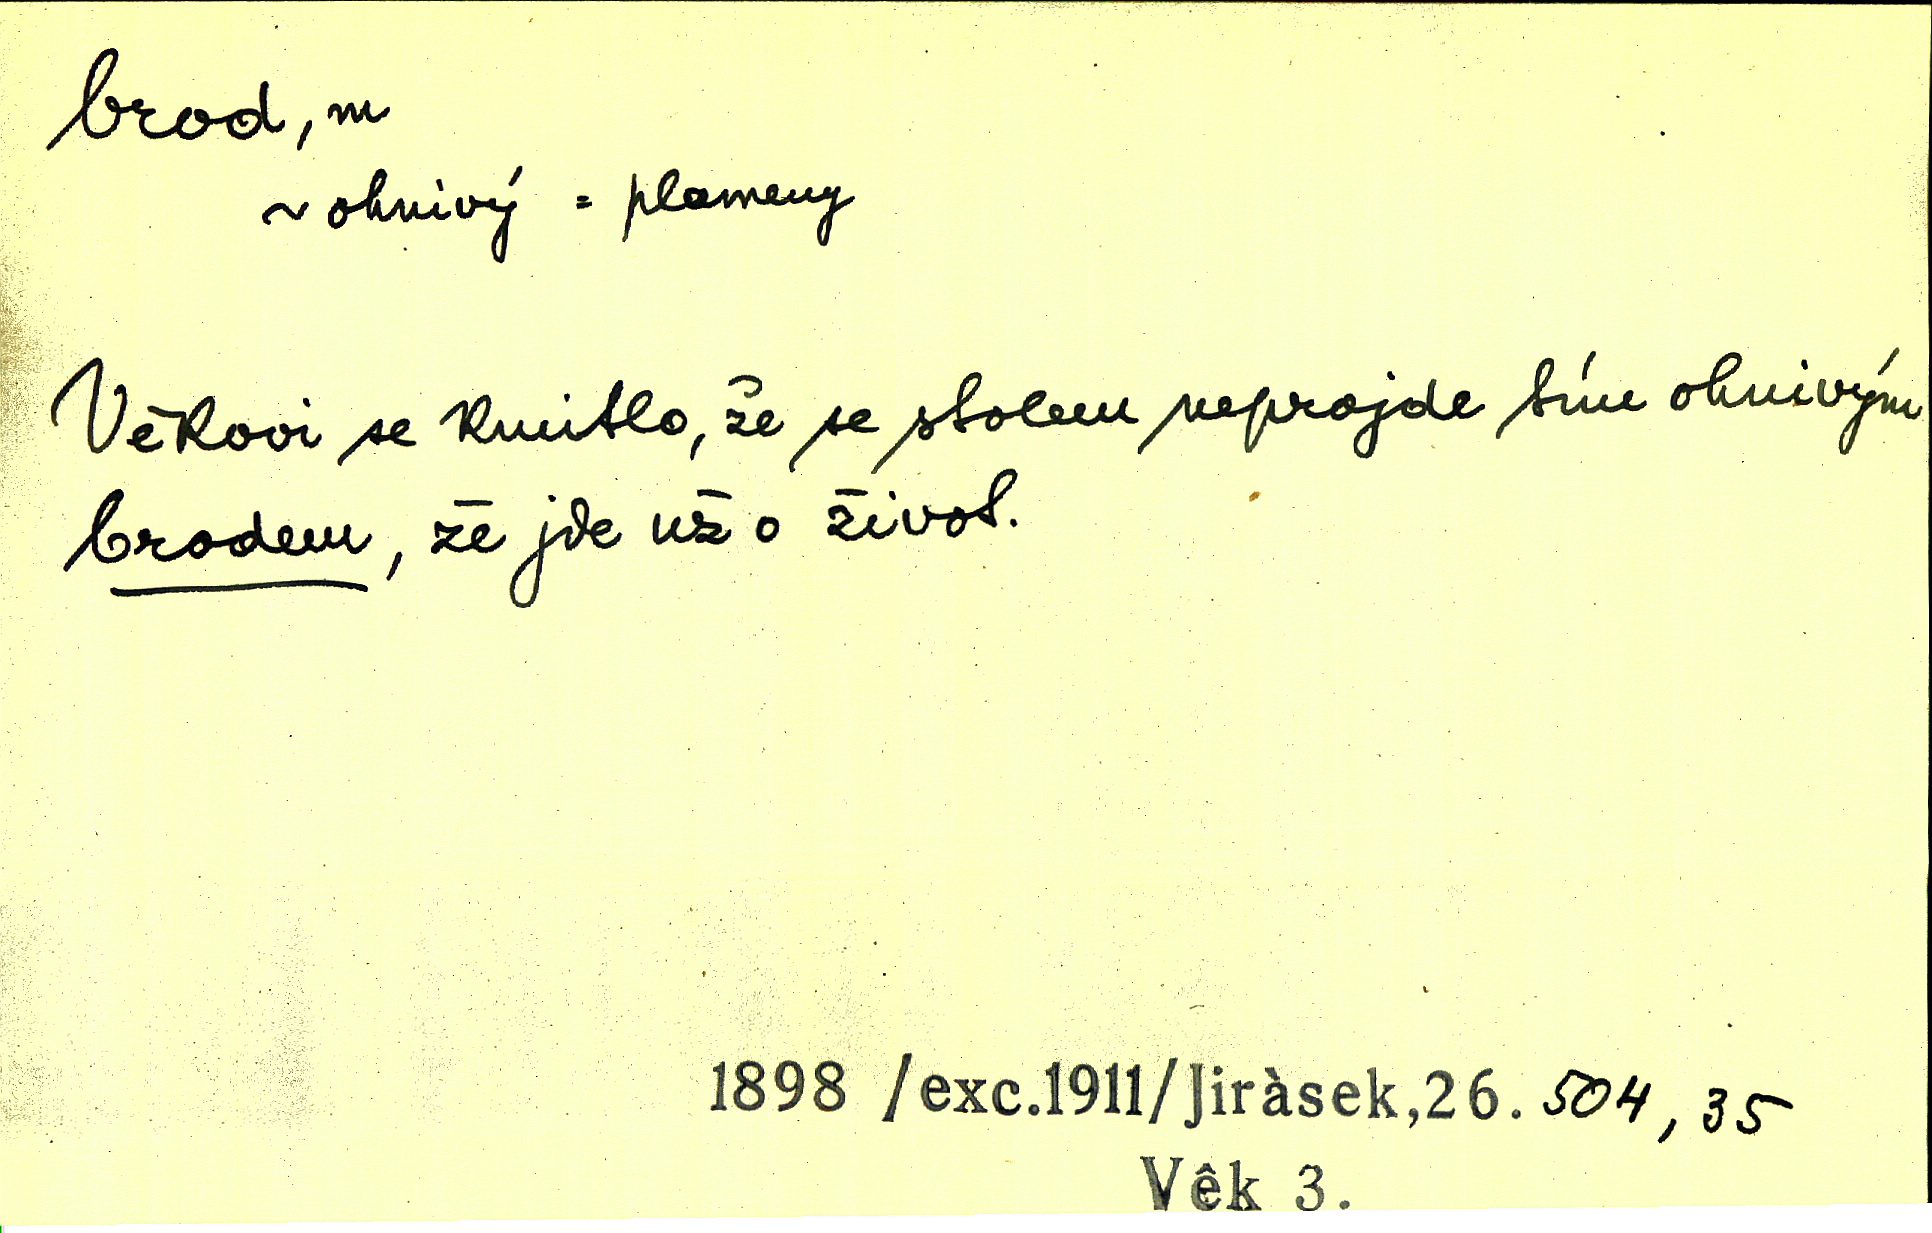 brod, m
~ ohnivý = plameny
Věkovi se kmitlo, že se stolem neprojde tím ohnivým
brodem, že jde už o život.
1898 /exc.1911/Jiràsek,26. 504, 35
Vêk 3.